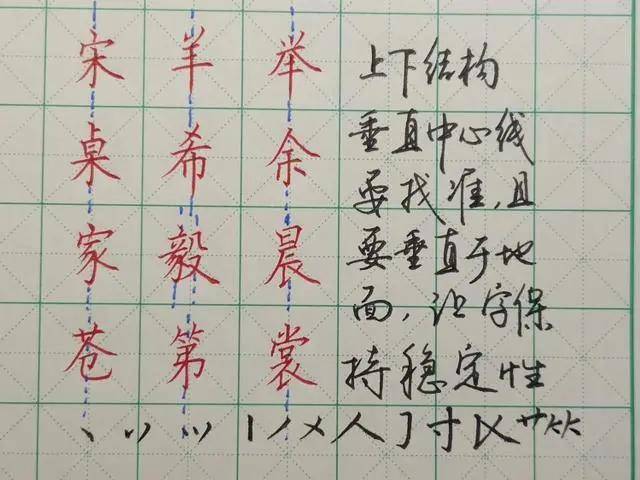 宋羊举
桌希余
家毅晨
苍第裳
上下结构
垂直中心线
要找准,且
要垂直于地
面,让字保
持稳定性